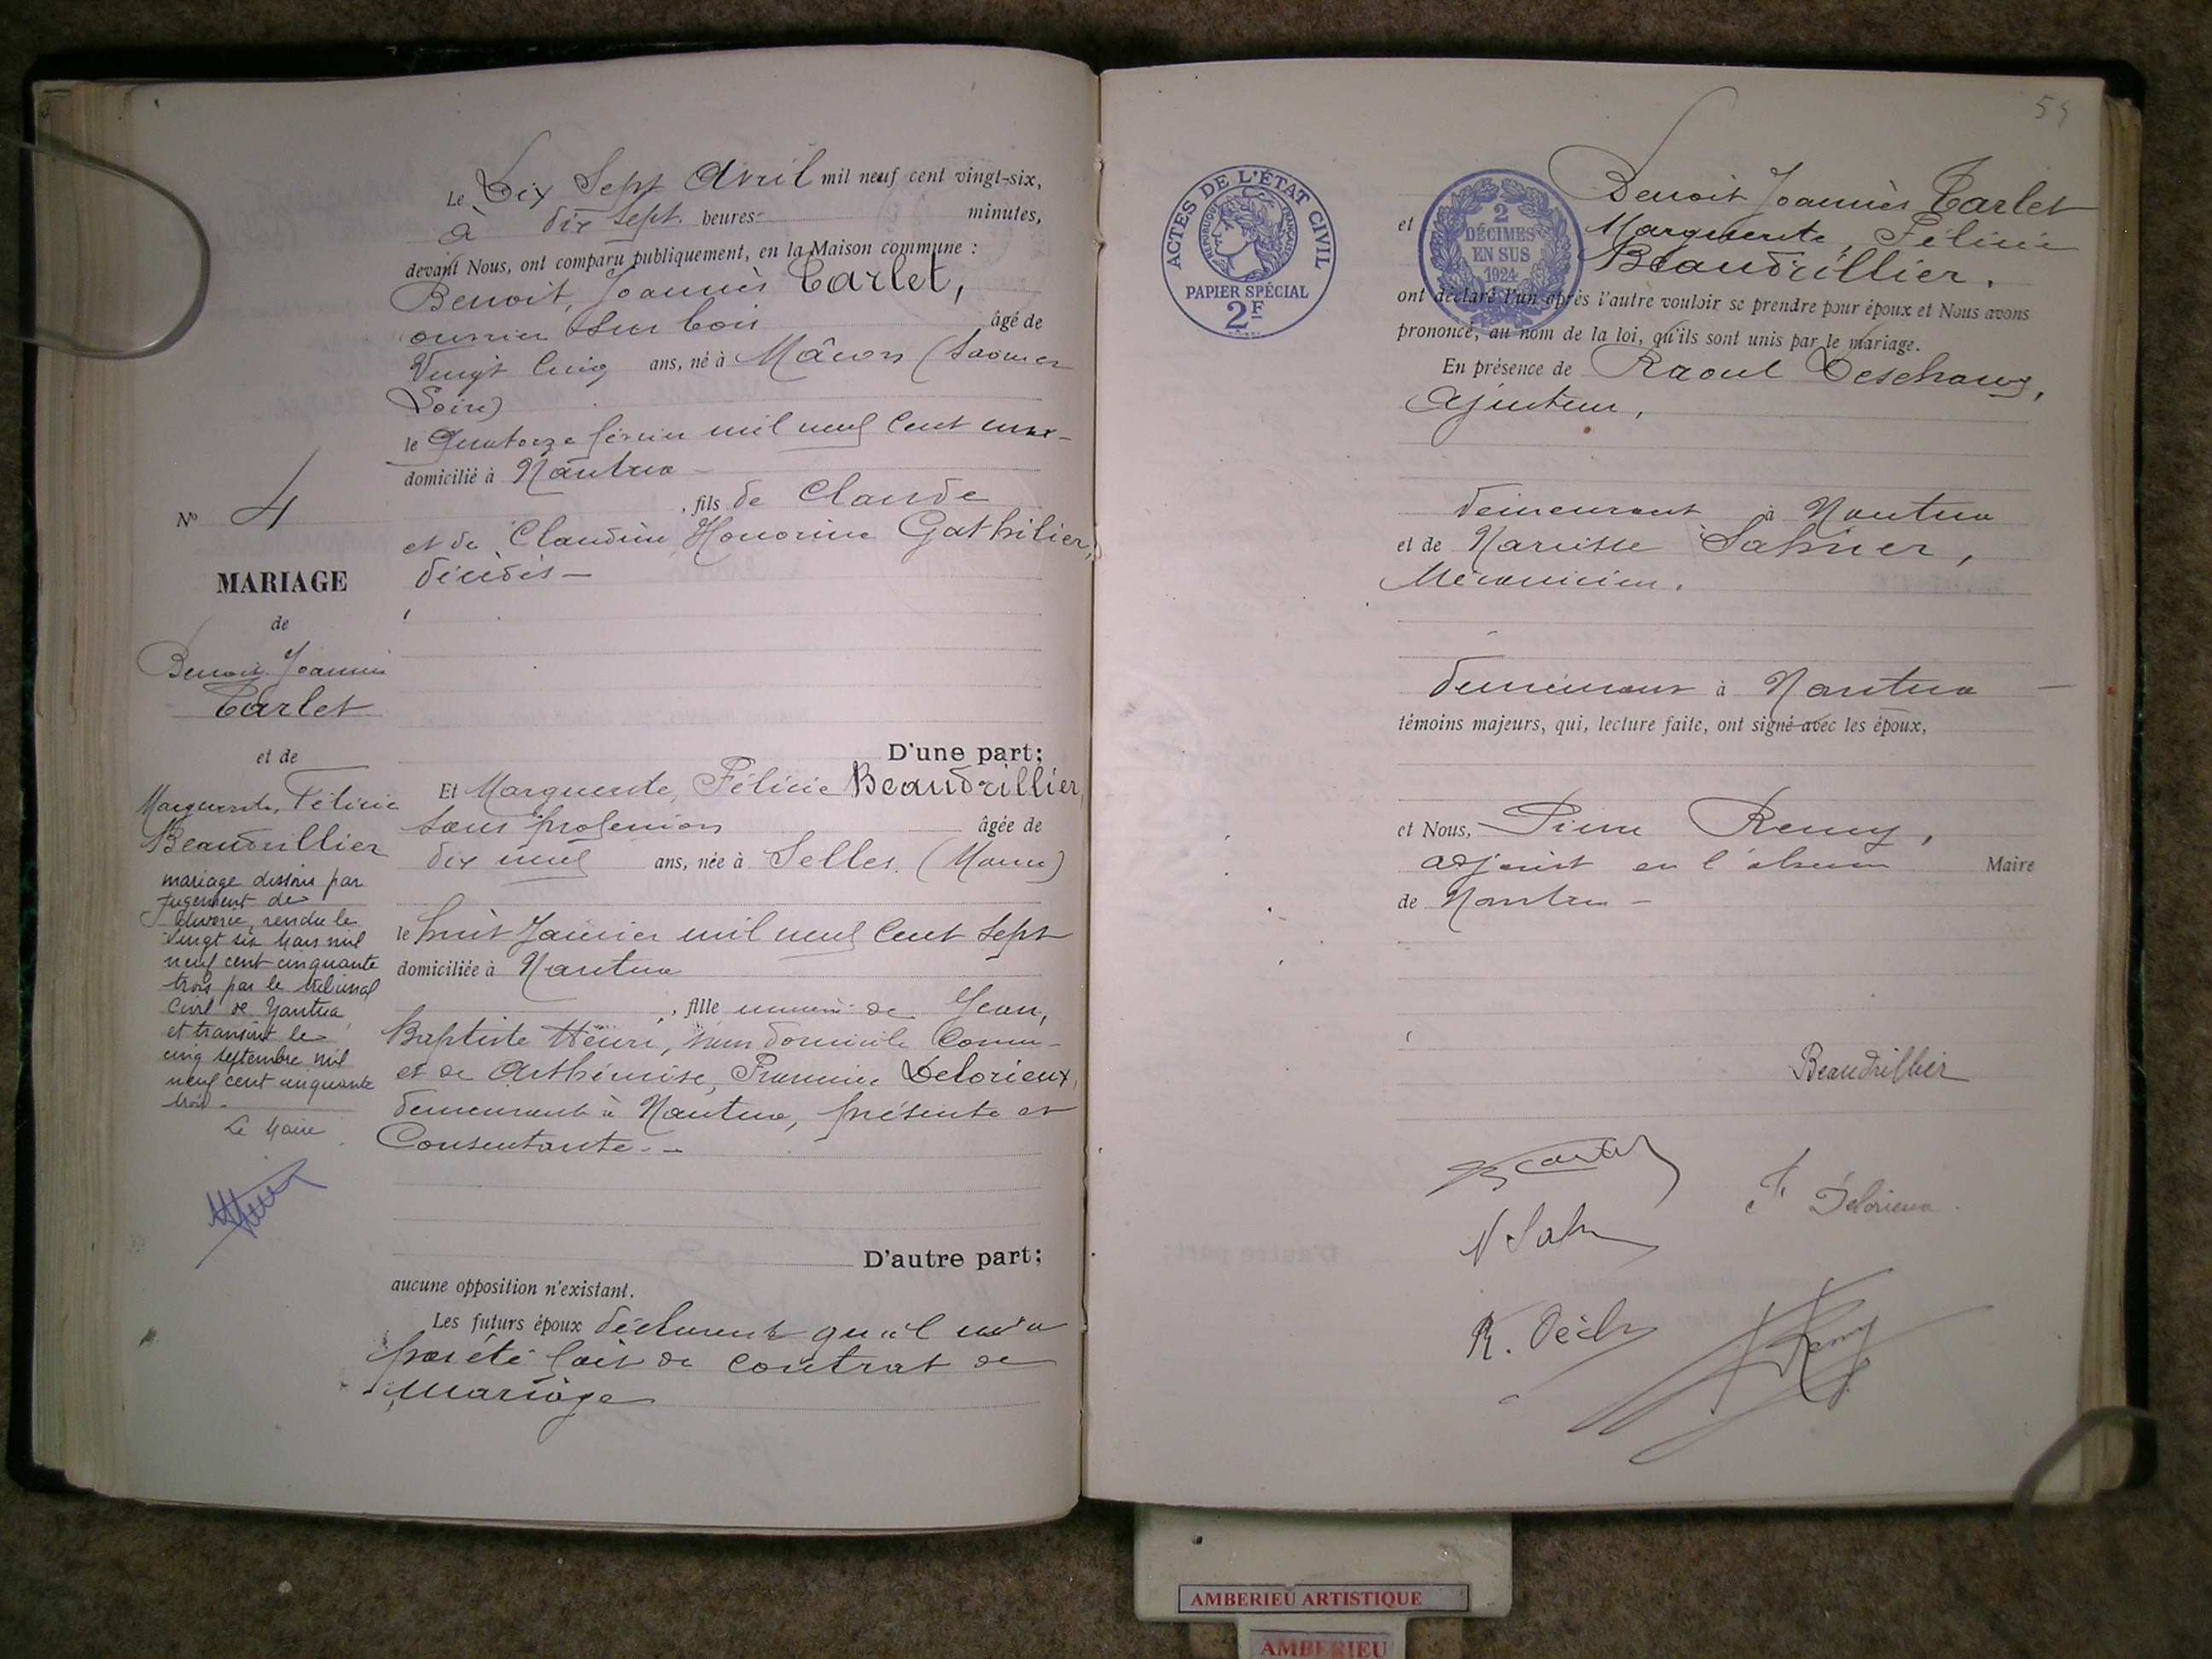 Le Dix Sept Avril mil neuf cent vingt-six,
à dix sept heures minutes,
devant Nous, ont comparu publiquement, en la Maison commune :
Benoit, Joannès Carlet,
ouvrier sur bois âgé de
Vingt Cinq ans, né à Mâcon (Saône et
Loire)
le Quatorze février mil neuf Cent un
domicilié à Nantua
, fils de Claude
et de Claudine Honorine Gathilier,
décédés
D'une part;
Et Marguerite, Félicie Beaudrillier,
sans profession âgée de
dix neuf ans, née à Selles (Marne)
le huit Janvier mil neuf Cent Sept
domiciliée à Nantua
, fille mineure de Jean,
Baptiste Henri, sans domicile Connu
et de Arthémise, Francine Delorieux,
demeurant à Nantua, présente et
Consentante
D'autre part;
aucune opposition n'existant.
Les futurs époux déclarent qu'il n'a
pas été fait de contrat de
Mariage
N° 4
MARIAGE
de
Benoit Joannès
Carlet
et de
Marguerite, Félicie
Beaudrillier
mariage dissous par
jugement de
divorce, rendu le
vingt six Mars mil
neuf cent cinquante
trois par le tribunal
Civil de Nantua
et transcrit le
cinq septembre mil
neuf cent cinquante
trois
Le Maire
54
ACTES DE L'ÉTAT CIVIL
RÉPUBLIQUE FRANÇAISE
PAPIER SPÉCIAL
2F
2
DÉCIMES
EN SUS
1924
Benoit Joannès Carlet
et Marguerite, Félicie
Beaudrillier.
ont déclaré l'un après l'autre vouloir se prendre pour époux et Nous avons
prononcé, au nom de la loi, qu'ils sont unis par le mariage.
En présence de Raoul Deschamps,
Ajusteur,
demeurant à Nantua
et de Narcisse Sahner,
Mécanicien,
demeurant à Nantua
témoins majeurs, qui, lecture faite, ont signé avec les époux,
et Nous, Pierre Remy,
adjoint en l'absence Maire
de Nantua
Beaudrillier
B Carlet
F Delorieux
N Sahn
R. Dech
Remy
AMBERIEU ARTISTIQUE
AMBERIEU